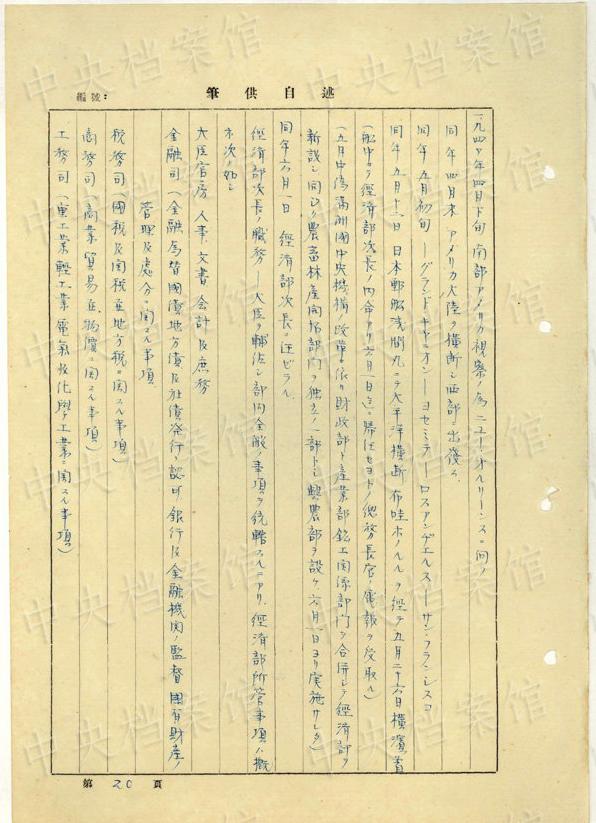 筆供自述
編號:
一九四〇年四月下旬 南部アメリカ視察ノ為ニューオルリーンスニ向フ
同年四月末 アメリカ大陸ヲ横断シ西部ニ出発ス
同年五月初旬 ーグランドキャニオンーヨセミテーロスアンゲエルスーサンフランシスコ
同年五月十二日 日本郵船浅間丸ニテ太平洋横断 布哇ホノルルヲ経テ五月二十六日横濱着
(船中ニテ経済部次長ノ内命アリ六月一日迄ニ帰任セヨトノ総務長官ノ電報ヲ受取ル)
(五月中満洲國中央機構ノ改革ニ依リ財政部ト産業部鉱工関係部門ヲ合併シテ經済部ヲ
新設シ同シク農畜林産開拓部門ヲ独立ノ一部トシ興農部ヲ設ケ六月一日ヨリ実施サレタ)
同年六月一日 經済部次長ニ任ゼラル
經済部次長ノ職務ー大臣ヲ輔佐シ部内全般ノ事項ヲ統轄スルニアリ、經済部所管事項ハ概
ネ次ノ如シ
大臣官房 人事、文書 会計及庶務
金融司(金融為替國債地方債及社債発行ノ認可 銀行及金融機関ノ監督 國有財産ノ
管理及處分ニ関スル事項
税務司(國税及関税並地方税ニ関スル事項)
商務司(商業貿易並物價ニ関スル事項)
工務司(重工業輕工業電氣及化學工業ニ関スル事項)
第 20 頁
中央档案馆